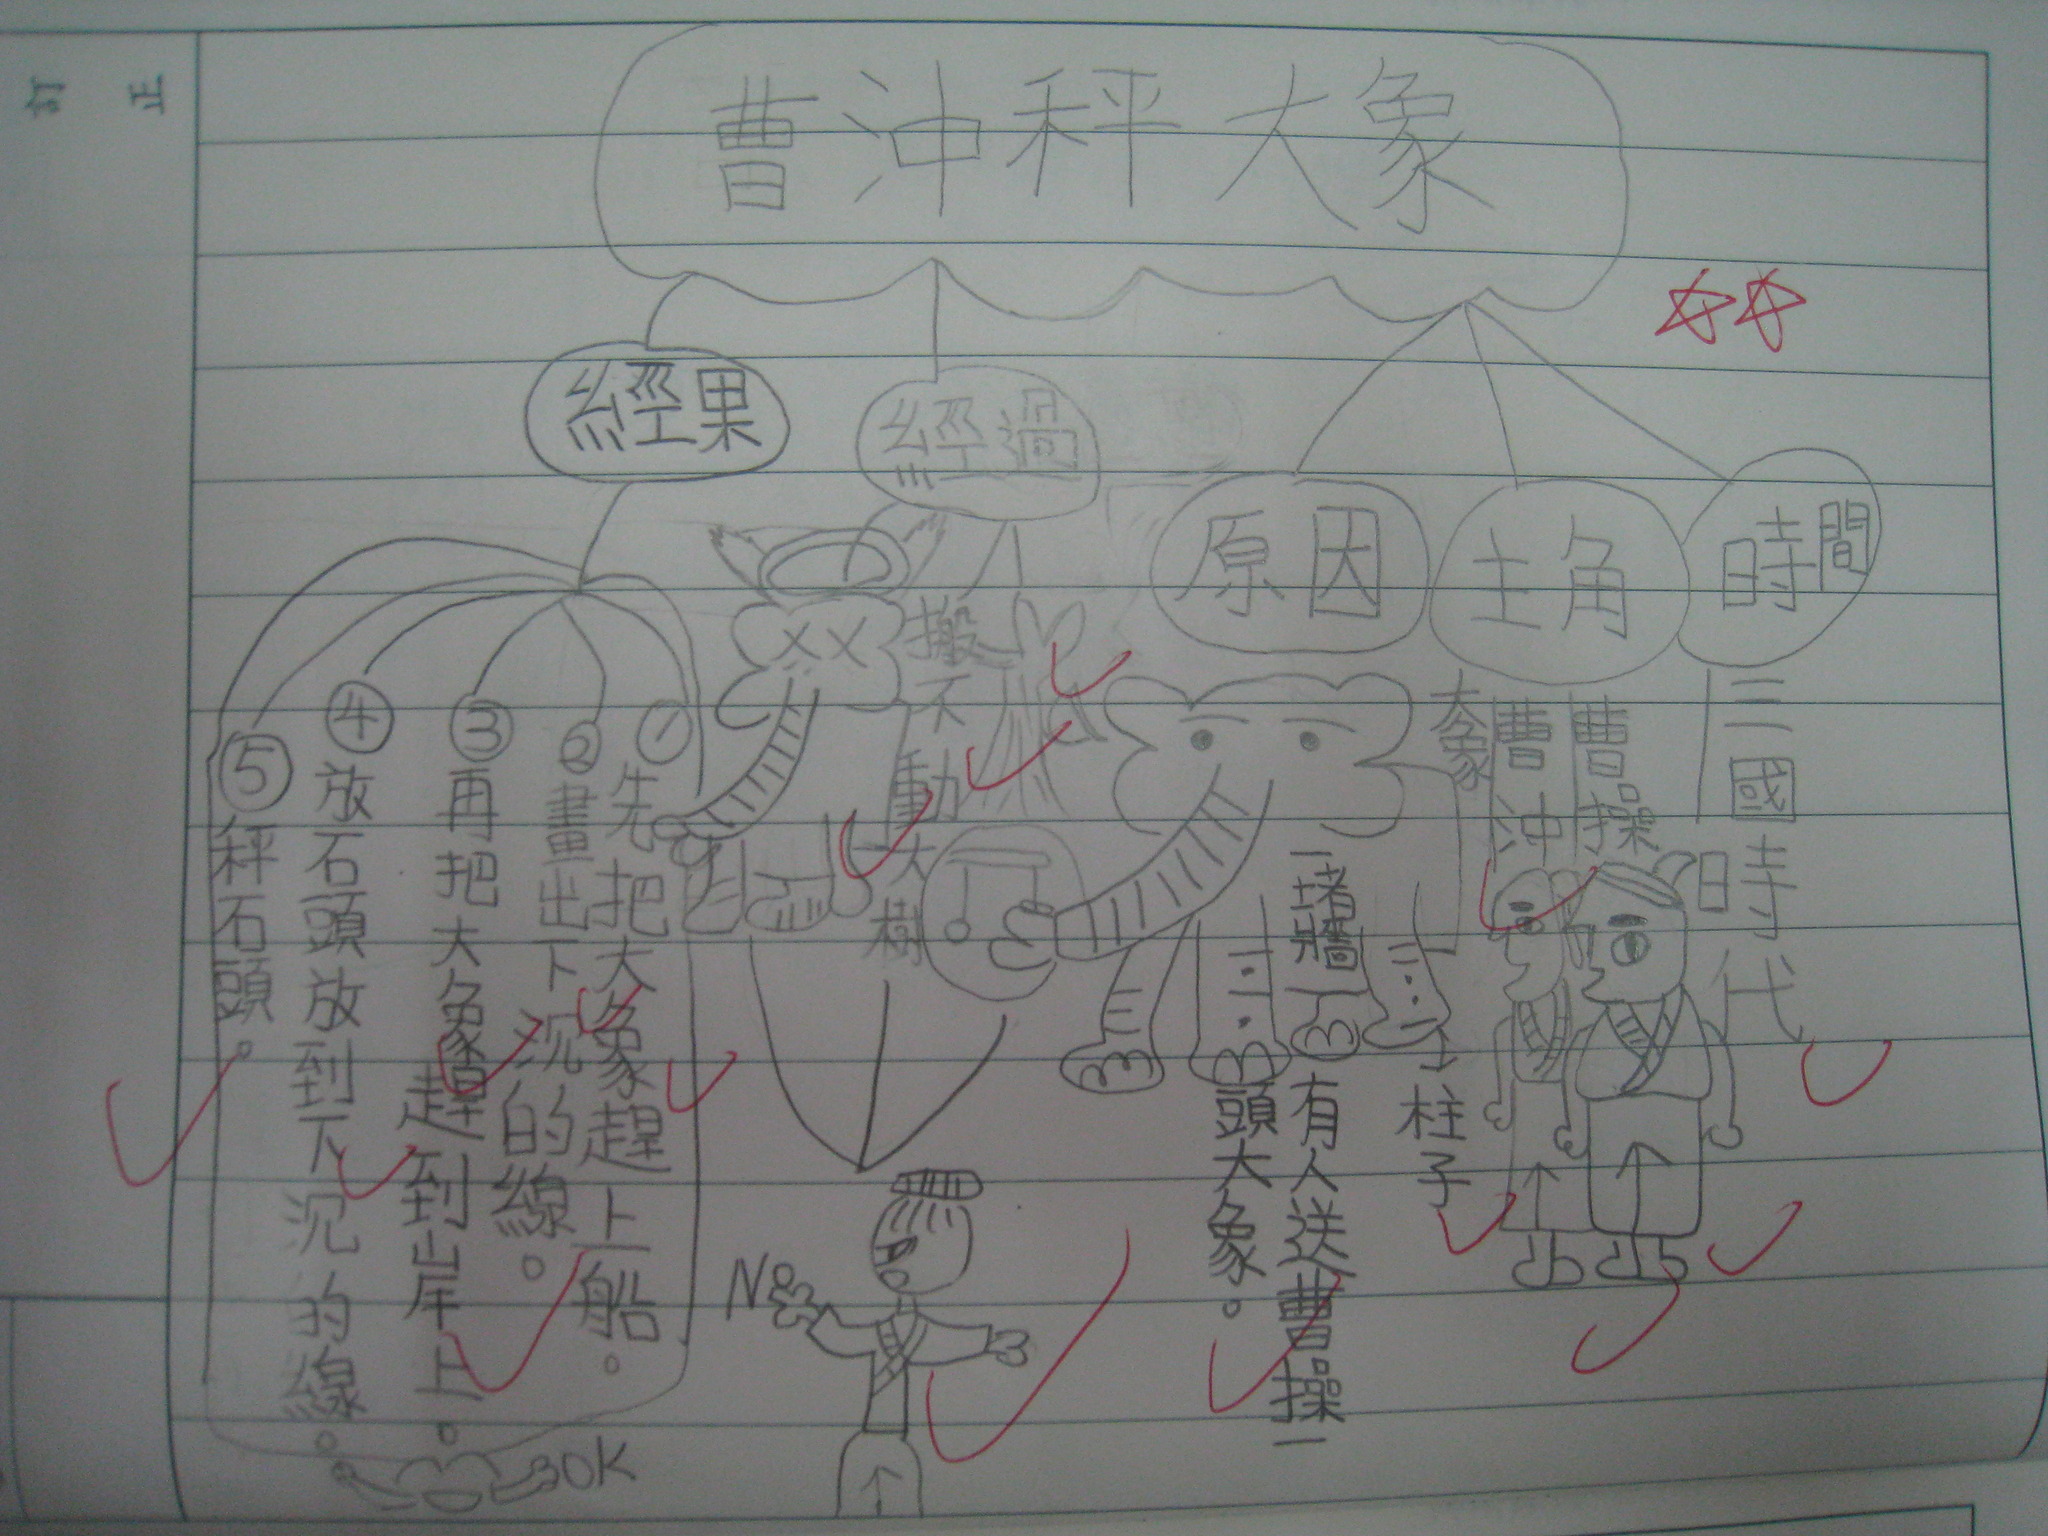 訂正
曹沖秤大象
時間
三國時代
主角
曹操
曹沖
大象
原因
一堵牆
柱子
有人送曹操一
頭大象。
經過
搬不動
大樹
No
經果
①先把大象趕上船。
②畫出下沉的線。
③再把大象趕到岸上。
④放石頭放到下沉的線。
⑤秤石頭。
OK